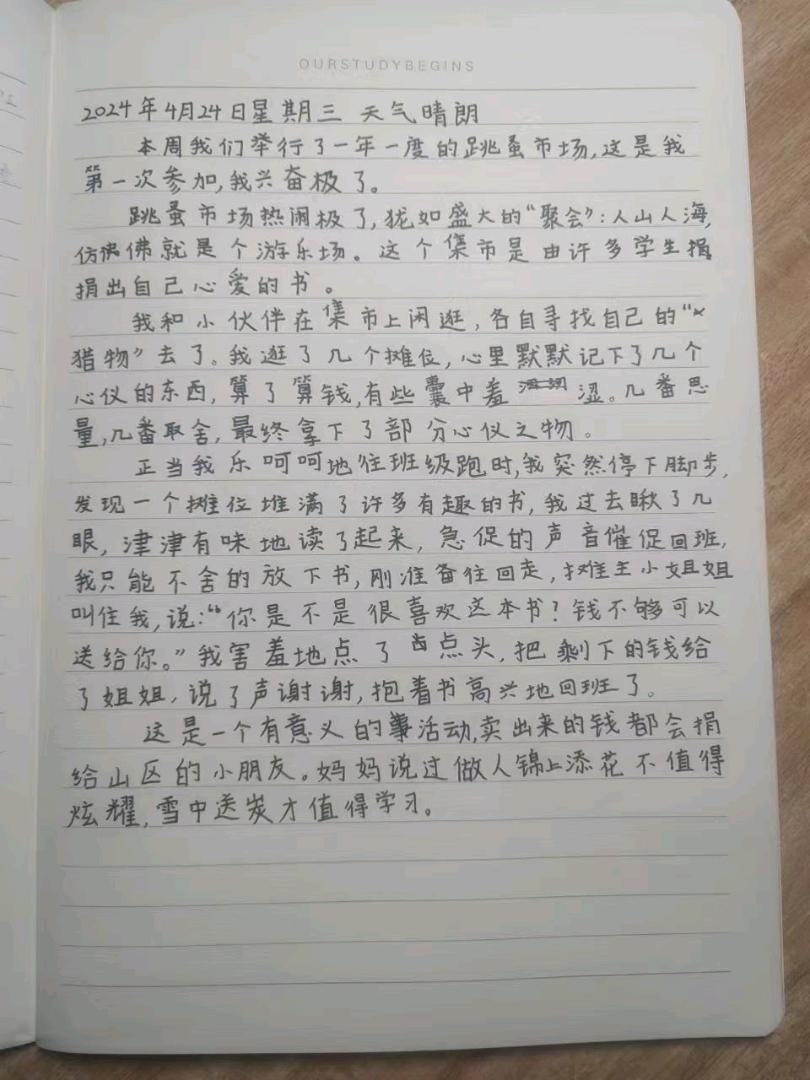 OURSTUDYBEGINS
2024年4月24日星期三 天气晴朗
本周我们举行了一年一度的跳蚤市场,这是我
第一次参加,我兴奋极了。
跳蚤市场热闹极了,犹如盛大的“聚会”:人山人海,
仿佛佛就是个游乐场。这个集市是由许多学生捐
捐出自己心爱的书。
我和小伙伴在集市上闲逛,各自寻找自己的“
猎物”去了。我逛了几个摊位,心里默默记下了几个
心仪的东西,算了算钱,有些囊中羞涩。几番思
量,几番取舍,最终拿下了部分心仪之物。
正当我乐呵呵地往班级跑时,我突然停下脚步,
发现一个摊位堆满了许多有趣的书,我过去瞅了几
眼,津津有味地读了起来,急促的声音催促回班,
我只能不舍的放下书,刚准备往回走,摊主小姐姐
叫住我,说:“你是不是很喜欢这本书?钱不够可以
送给你。”我害羞地点了点头,把剩下的钱给
了姐姐,说了声谢谢,抱着书高兴地回班了。
这是一个有意义的活动,卖出来的钱都会捐
给山区的小朋友。妈妈说过做人锦上添花不值得
炫耀,雪中送炭才值得学习。